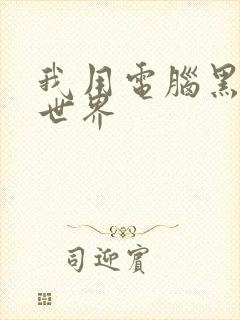 我用電腦黑
世界
司迎賓